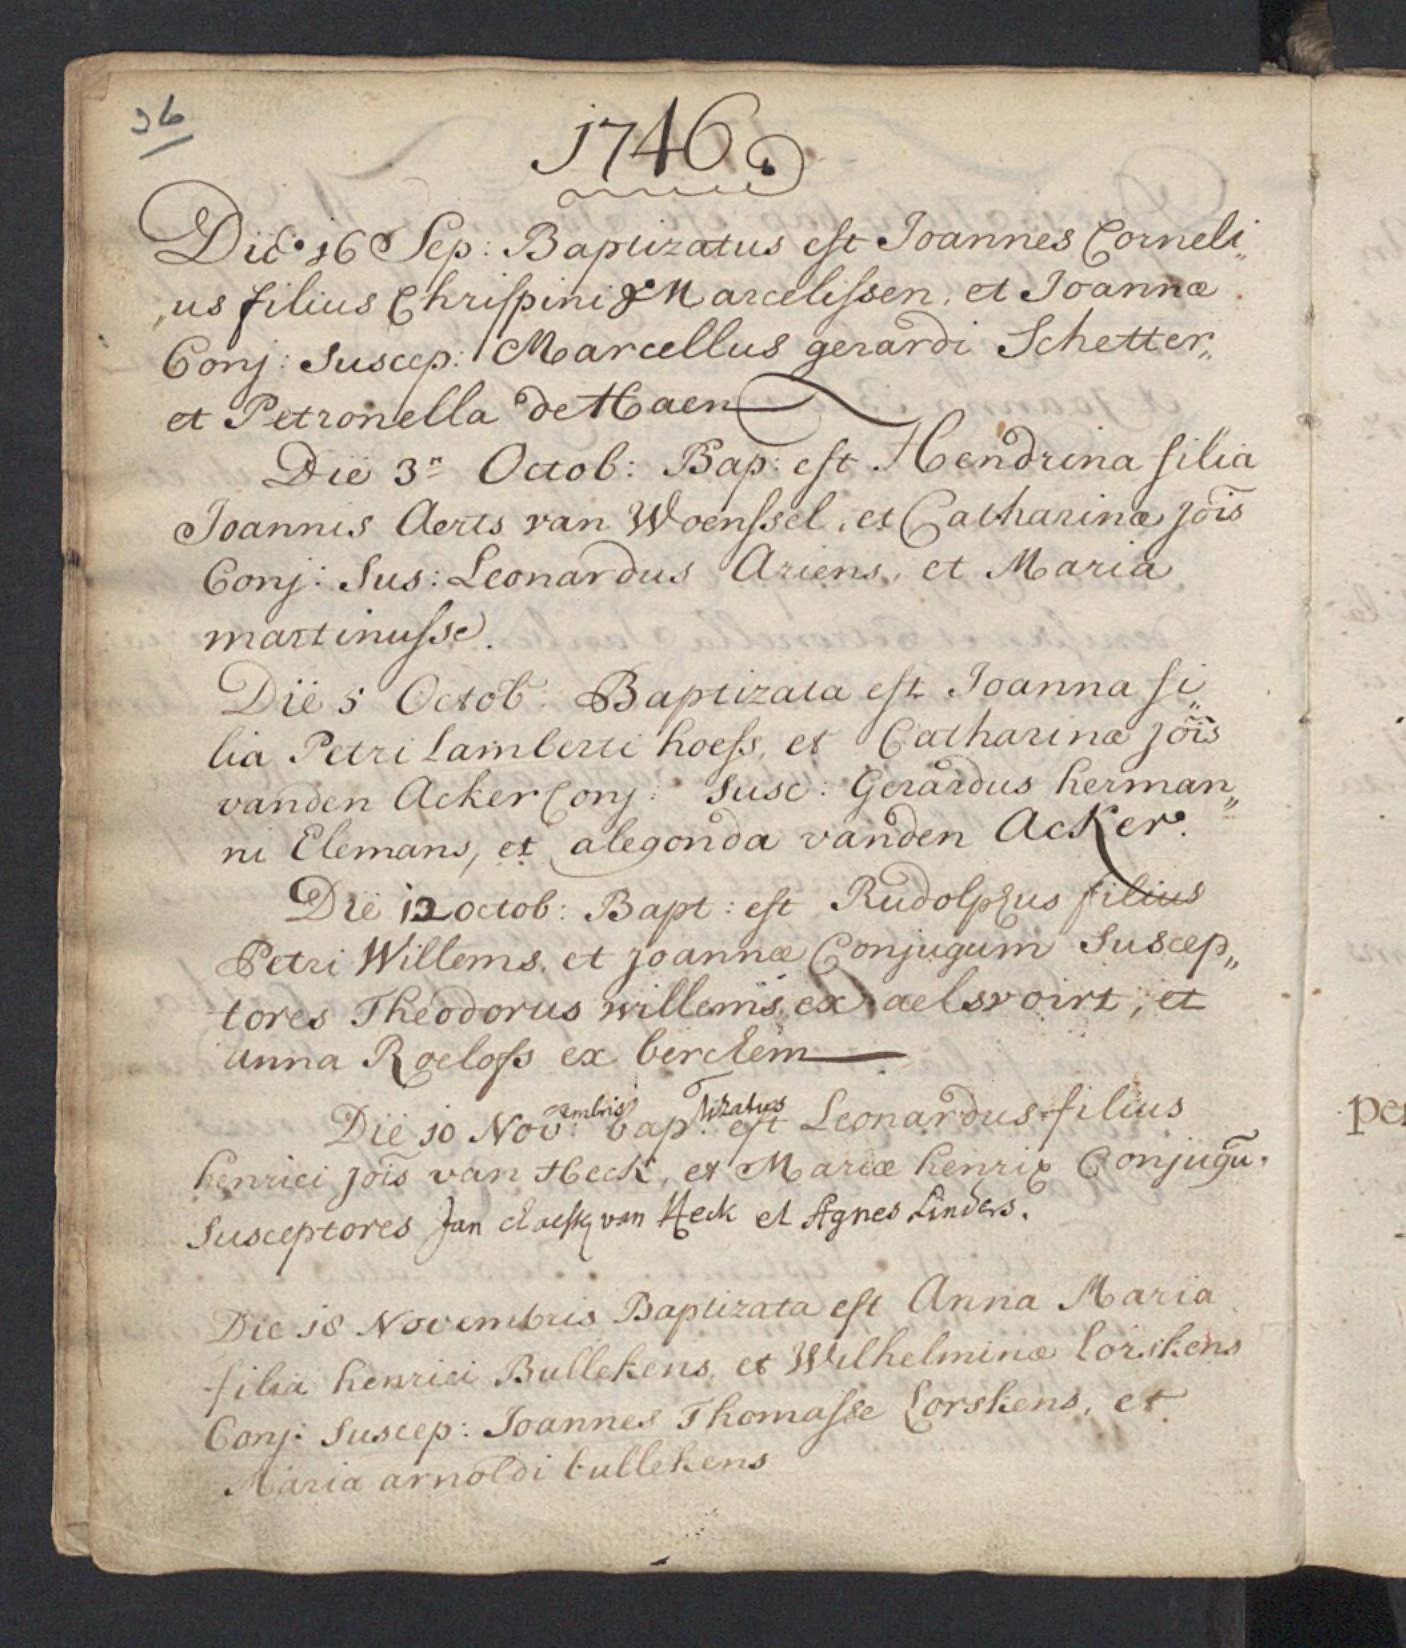 36
1746.
Die 16 Sep: Baptizatus est Joannes Corneli„
us filius Chrispini Marcelissen, et Joannæ
Conj: Suscep: Marcellus gerardi Schetter„
et Petronella de Haen
Die 3" Octob: Bap: est Hendrina filia
Joannis Aerts van Woenssel, et Catharinæ jõis
Conj: Sus: Leonardus Ariens, et Maria
martinusse.
Die 5 Octob: Baptizata est Joanna fi„
lia Petri Lamberti hoess, et Catharinæ jõis
vanden Acker Conj: Susc: Gerardus herman„
ni Elemans, et alegonda vanden Acker.
Die 12 octob: Bapt: est Rudolphus filius
Petri Willems, et joannæ Conjugum Suscep„
tores Theodorus willems ex aelsvoirt, et
anna Roelofs ex berchem
Die 10 Novembris baptizatus est Leonardus filius
henrici jõis van Heck, et Mariæ henrix Conjugũ.
Susceptores Jan van Heck et Agnes Linders.
Die 18 Novembris Baptizata est Anna Maria
filia henrici Bullekens, et Wilhelminæ Corskens
Conj: Suscep: Joannes Thomasse Corskens, et
Maria arnoldi bullekens
per